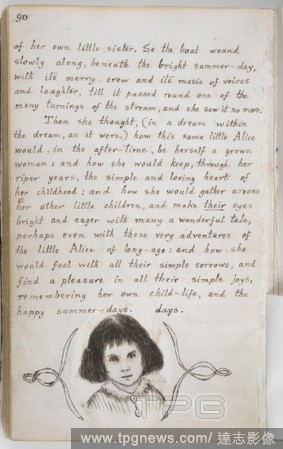 90
of her own little sister. So the boat wound
slowly along, beneath the bright summer-day,
with its merry crew and its music of voices
and laughter, till it passed round one of the
many turnings of the stream, and she saw it no more.
Then she thought, (in a dream within
the dream, as it were,) how this same little Alice
would, in the after-time, be herself a grown
woman: and how she would keep, through her
riper years, the simple and loving heart of
her childhood: and how she would gather around
her other little children, and make their eyes
bright and eager with many a wonderful tale,
perhaps even with these very adventures of
the little Alice of long-ago: and how she
would feel with all their simple sorrows, and
find a pleasure in all their simple joys,
remembering her own child-life, and the
happy summer-days. days.
TPG
www.tpgnews.com/達志影像